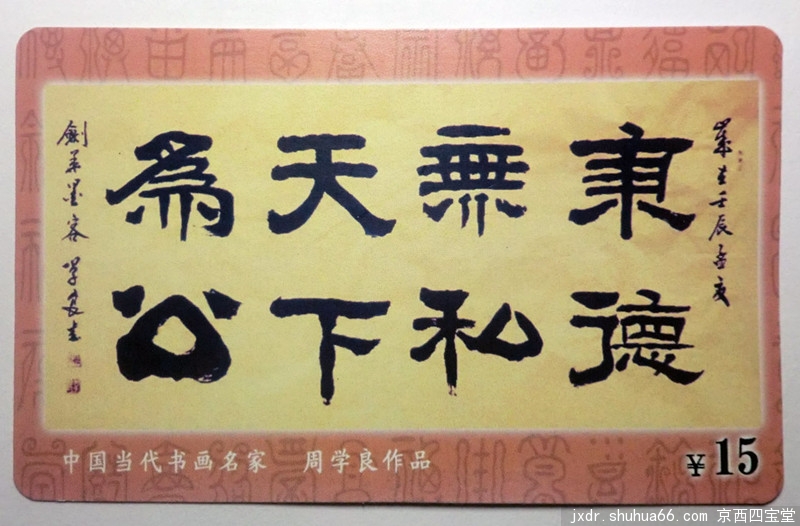 歲在壬辰孟夏
秉德
無私
天下
為公
墨客 学良
中国当代书画名家 周学良作品
￥15
jxdr.shuhua66.com 京西四宝堂